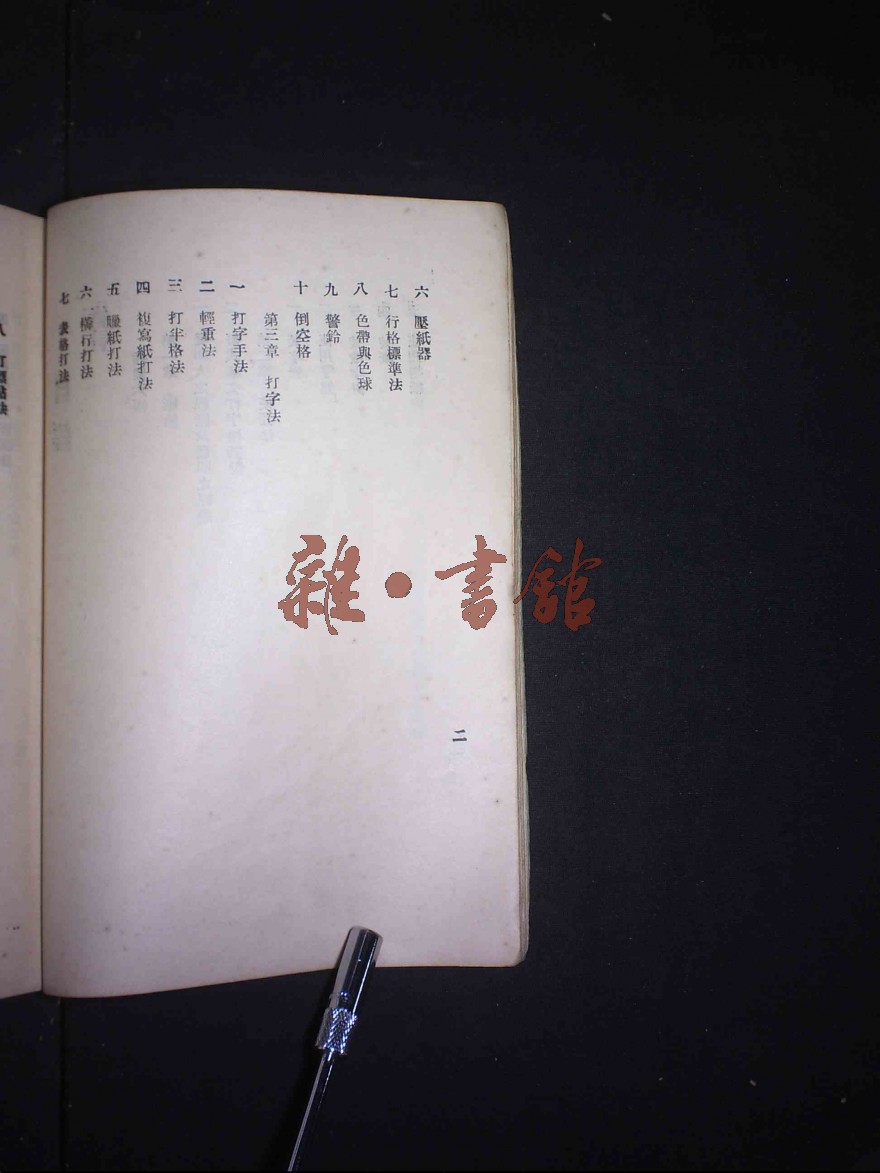 六　壓紙器
七　行格標準法
八　色帶與色球
九　警鈴
十　倒空格
第三章　打字法
一　打字手法
二　輕重法
三　打半格法
四　複寫紙打法
五　臘紙打法
六　橫行打法
七　表格打法
二
雜·書館